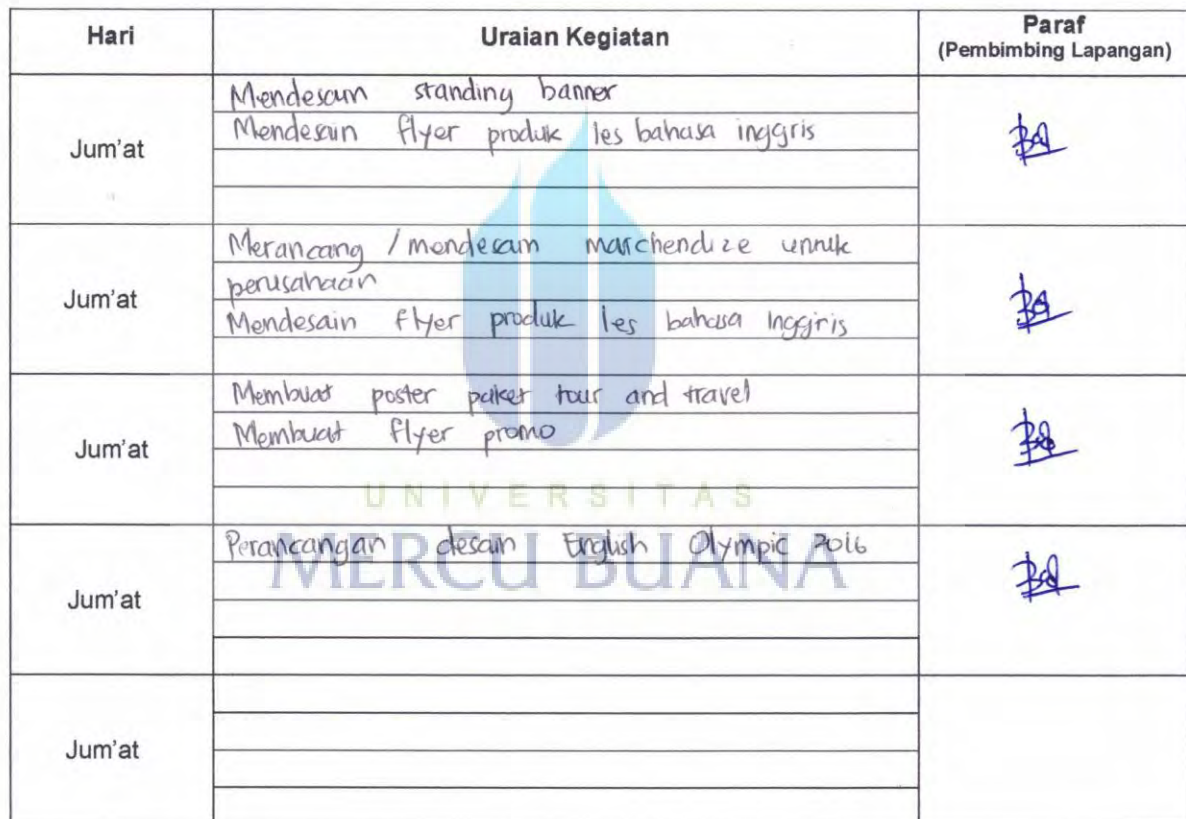 Hari Uraian Kegiatan Paraf
(Pembimbing Lapangan)
Mendesain standing banner
Mendesain flyer produk les bahasa inggris
Jum'at
Merancang / mendesain marchendize untuk
perusahaan
Jum'at
Mendesain flyer produk les bahasa Inggris
Membuat poster paket tour and travel
Membuat flyer promo
Jum'at
UNIVERSITAS
Perancangan desain English Olympic 2016
MERCU BUANA
Jum'at
Jum'at